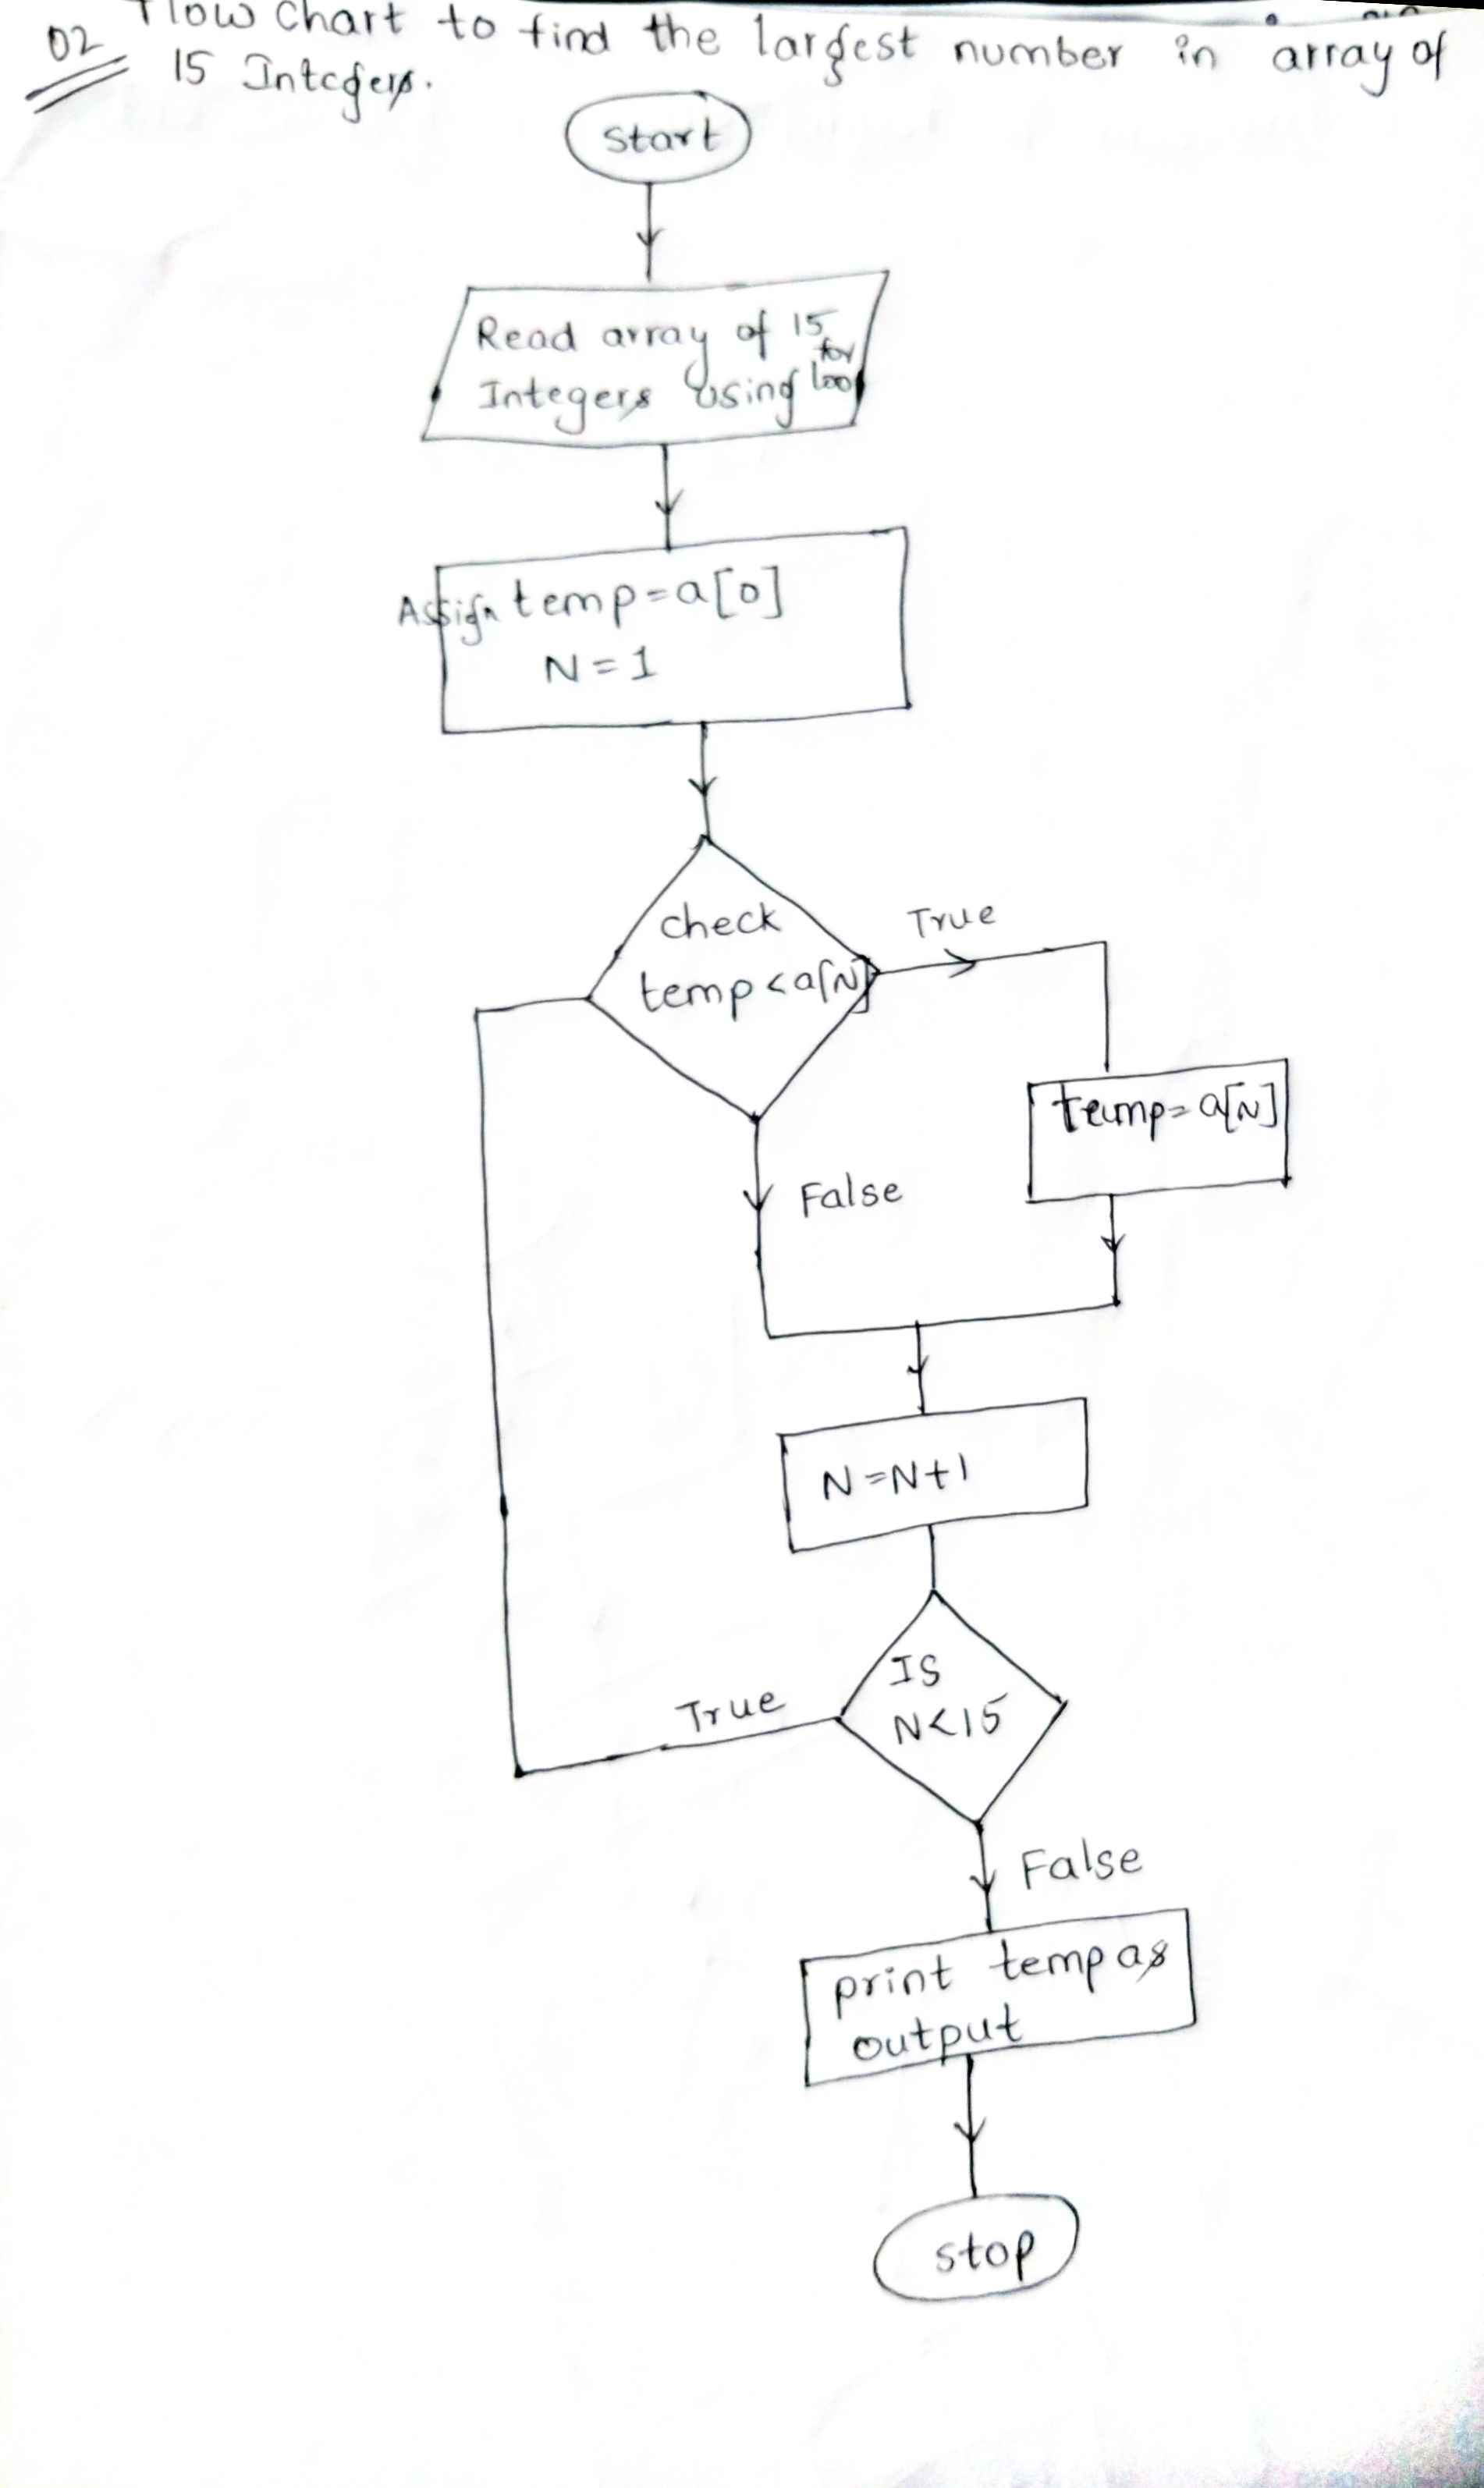 02 Flow Chart to find the largest number in array of
15 Integers.
Start
Read array of 15
for
Integers Using loop
Assign temp=a[0]
N=1
check
True
temp<a[N]
temp=a[N]
False
N=N+1
IS
True
N<15
False
print temp as
output
stop